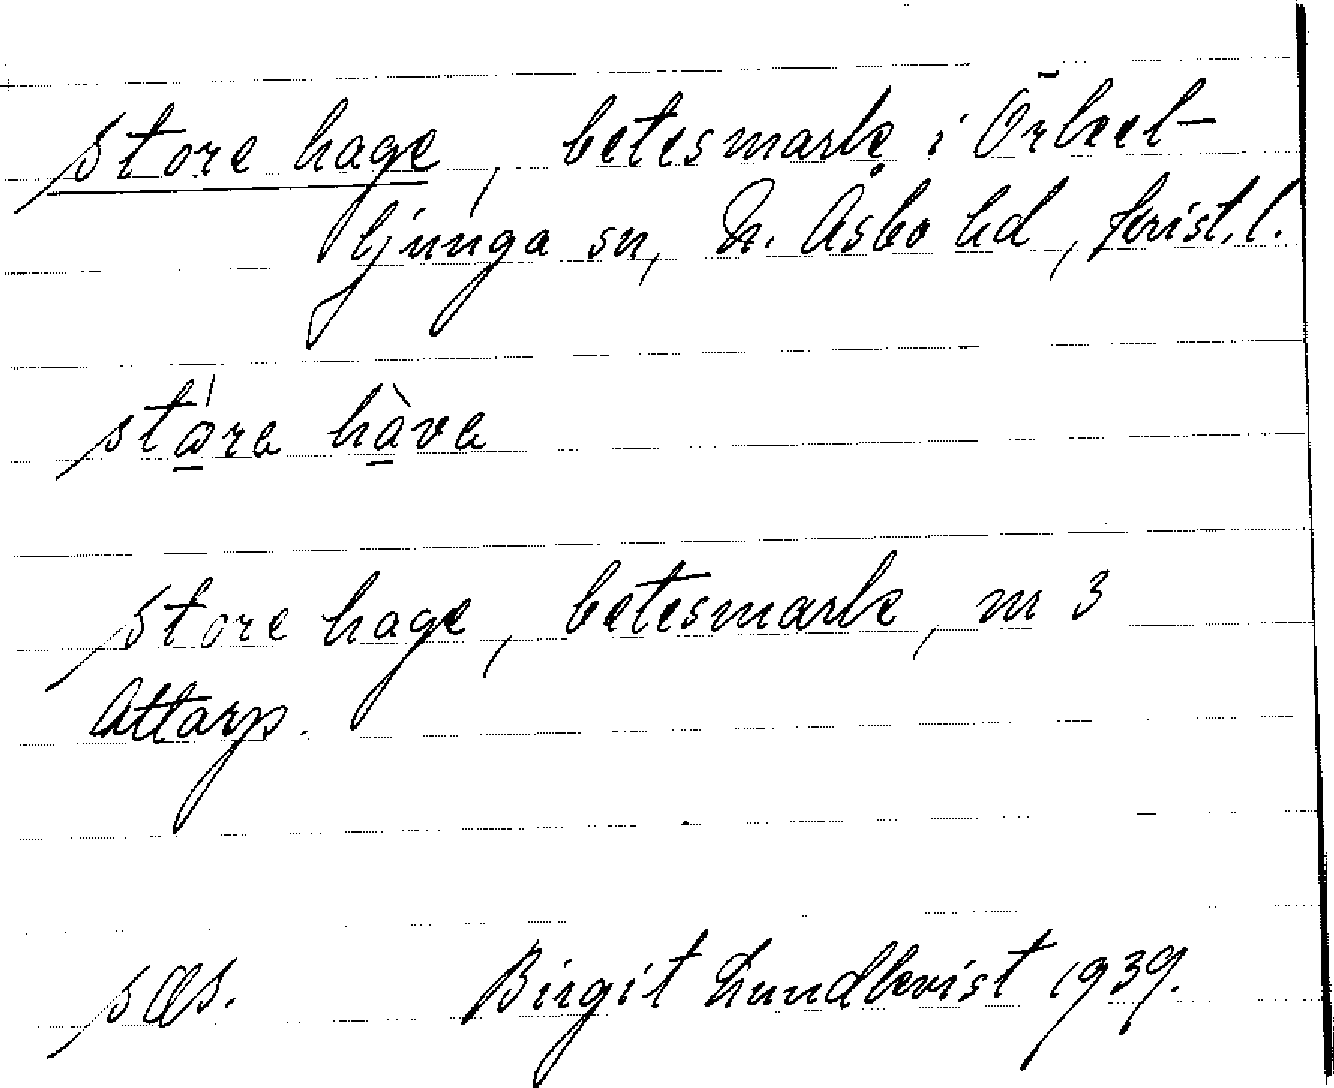 Store hage, betesmark i Örkel-
ljunga sn, N. Åsbo hd, Krist. l.
stɷ́ra hàva
Store hage, betesmark, nr 3
Attarp.
Birgit Lundkvist 1939.